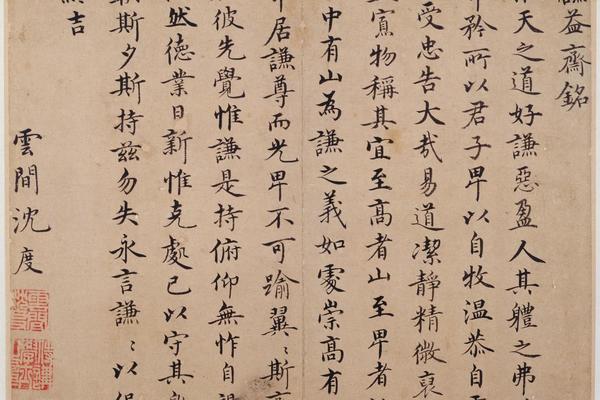 謙益齋銘
天之道好謙惡盈人其體之弗
矜所以君子卑以自牧温恭自
受忠告大哉易道潔靜精微裒
寡物稱其宜至高者山至卑者
中有山為謙之義如處崇高有
居謙尊而光卑不可踰翼〻斯
彼先覺惟謙是持俯仰無怍自
然德業日新惟克處已以守其
斯夕斯持茲勿失永言謙〻以
吉
雲間沈度